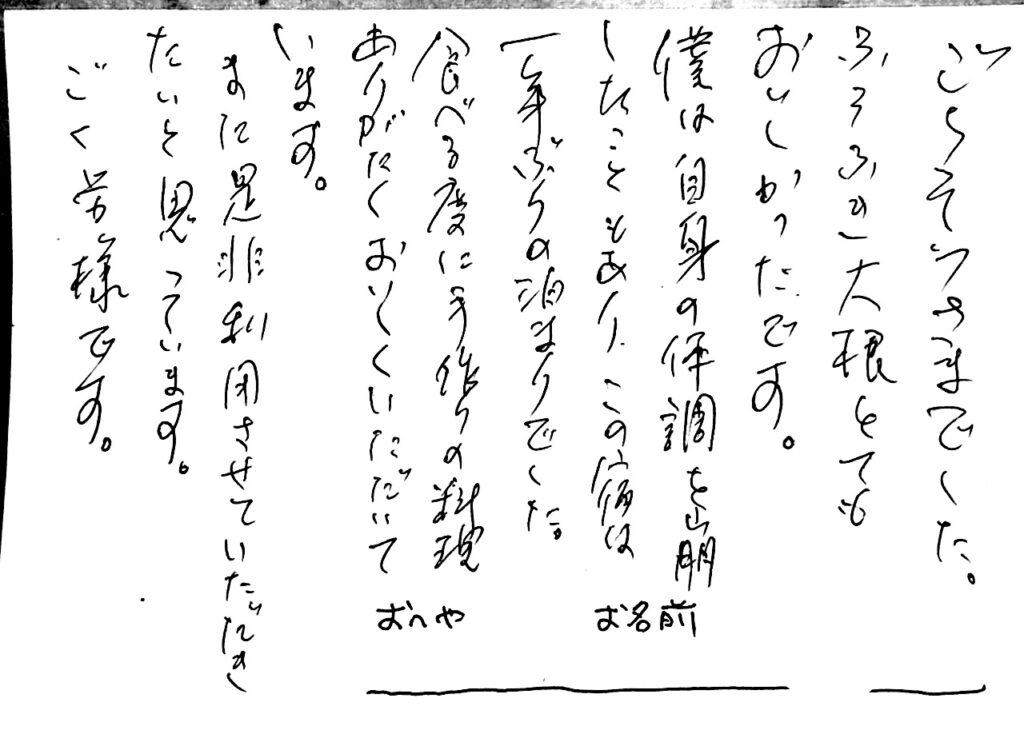 ごちそうさまでした。
ふろふき大根とても
おいしかったです。
僕は自身の体調を崩
したこともあり、この宿は
一年ぶりの泊まりでした。
食べる度に手作りの料理
ありがたくおいしくいただいて
います。
また是非利用させていただき
たいと思っています。
ごく労様です。
お名前
おへや